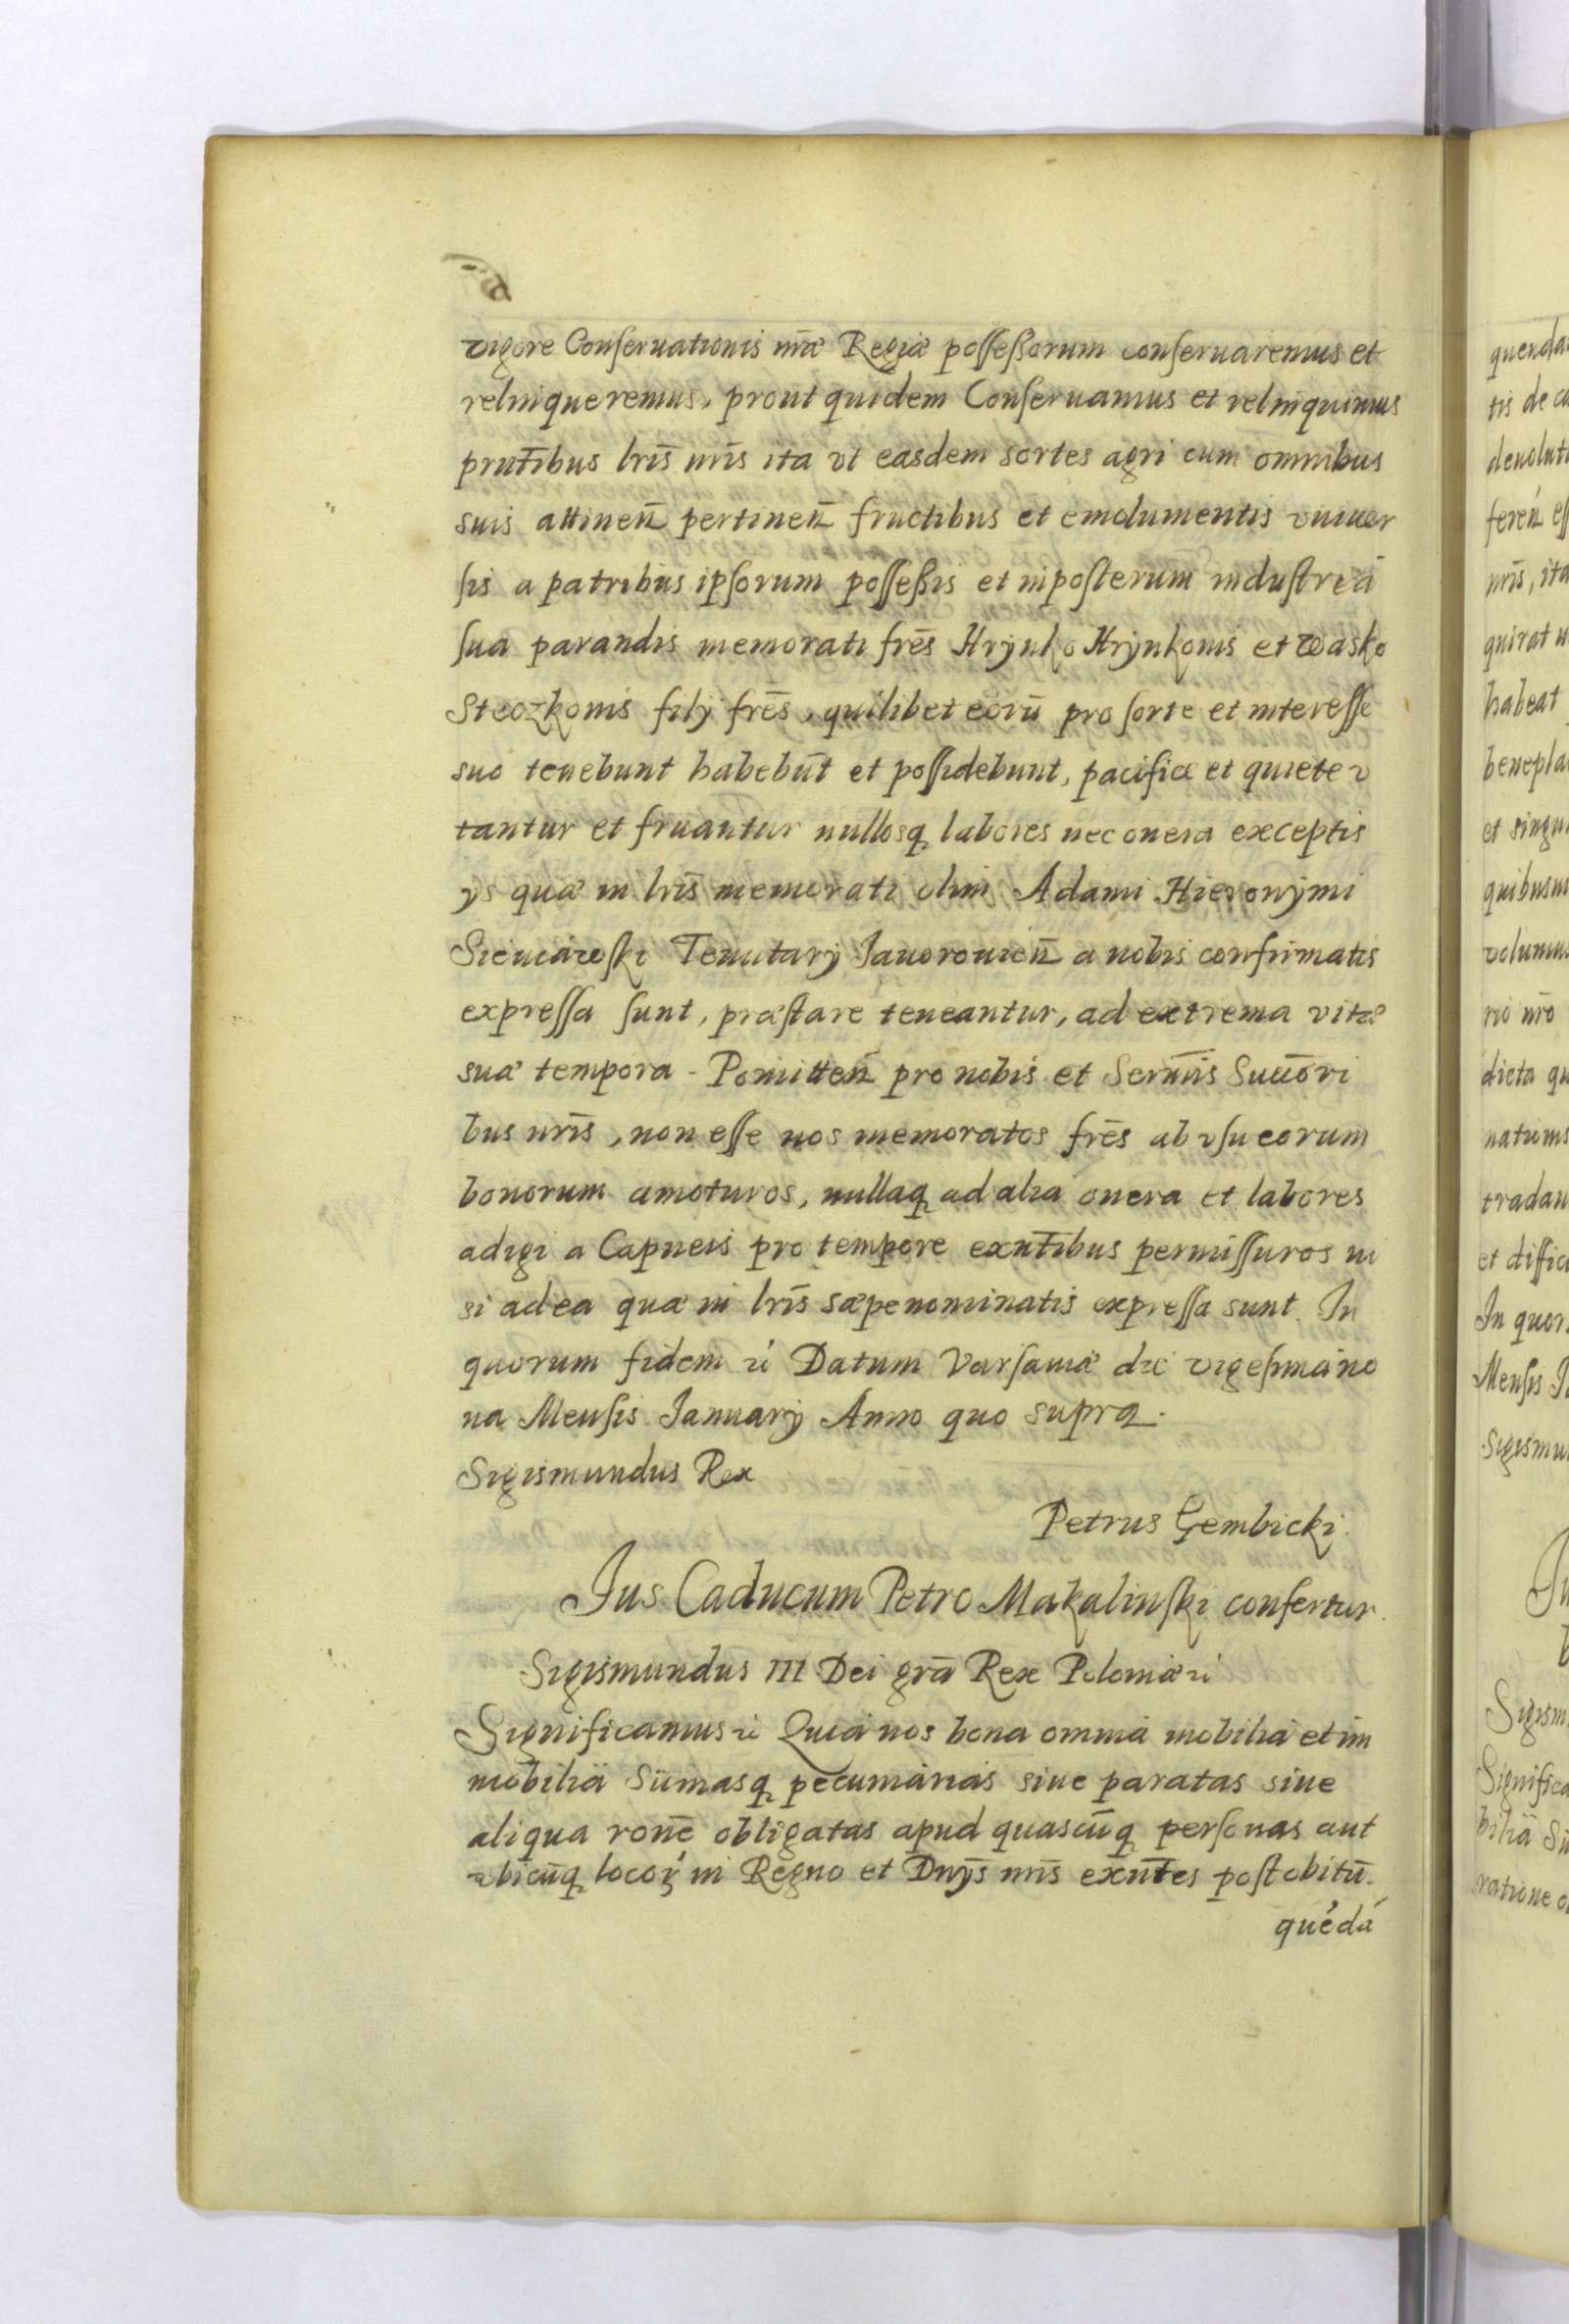 vigore Conseruationis nrӕ Regiӕ possessorum conseruaremus et
relinqueremus, prout quidem Conseruamus et relinquimus
prnt̄ibus lrīs nrīs ita vt easdem sortes agri cum omnibus
suis attinen̄ pertinen̄ fructibus et emolumentis vniuer
sis a patribus ipsorum possessis et inposterum industria
sua parandis memorati frēs Hrÿnko Hrÿnkonis et Wasko
Steczkonis filÿ frēs, quilibet eorū pro sorte et interesse
suo tenebunt habebūt et possidebunt, pacifice et quiete v
tantur et fruantur nullosq labores nec onera exceptis
ÿs quӕ in lrīs memorati olim Adami Hieronÿmi
Sieniawski Tenutarÿ Iauorouien̄ a nobis confirmatis
expressa sunt, prӕstare teneantur, ad extrema vitӕ
suӕ tempora - Pomitten̄ pro nobis et Sernīis Succōri
bus nrīs, non esse nos memoratos frēs ab vsu eorum
bonorum amoturos, nullaq ad alia onera et labores
adigi a Capneis pro tempore exnt̄ibus permissuros ni
si ad ea quӕ in lrīs sӕpenominatis expressa sunt. In
quorum fidem ꝛc Datum Varsauiӕ die vigesima no
na Mensis Ianuarÿ Anno quo supra.
Sigismundus Rex
Petrus Gembicki.
Ius Caducum Petro Makalinski confertur.
Sigismundus III Dei grā Rex Poloniӕ ꝛc
Significamus ꝛc Quia nos bona omnia mobilia et im
mobilia Sūmasq pecuniarias siue paratas siue
aliqua ronē obligatas apud quascūq personas aut
vbicūq locoꝝ in Regno et Dnÿs nrīs exnt̄es post obitū
quédá